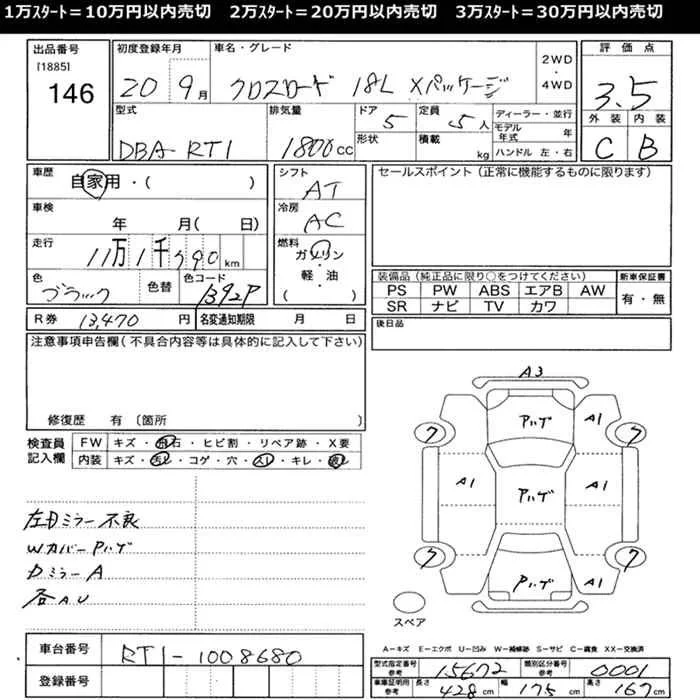 1万ｽﾀｰﾄ＝10万円以内売切　2万ｽﾀｰﾄ＝20万円以内売切　3万ｽﾀｰﾄ＝30万円以内売切
出品番号
[1885]
146
初度登録年月
20 9月
車名・グレード
クロスロード 18L Xパッケージ
2WD
・
4WD
評価点
3.5
外装 内装
C B
型式
DBA-RT1
排気量
1800cc
ドア
5
形状
定員
5人
積載
kg
ディーラー・並行
モデル年式 年
ハンドル 左・右
車歴
自家用・( )
車検
年 月( 日)
走行
11万1千990km
色
ブラック
色替
色コード
B92P
シフト
AT
冷房
AC
燃料
ガソリン
・
軽・油
( )
セールスポイント(正常に機能するものに限ります)
装備品(純正品に限り○をつけてください)
PS PW ABS エアB AW
SR ナビ TV カワ
新車保証書
有・無
後日品
R券 13,470円
名変通知期限 月 日
注意事項申告欄(不具合内容等は具体的に記入して下さい)
修復歴 有 〔箇所 〕
検査員
記入欄
FW キズ・飛石・ヒビ割・リペア跡・X要
内装 キズ・汚レ・コゲ・穴・スレ・キレ・破レ
左Dミラー不良
Wカバー Pハゲ
Dミラー A
各AU
A3
Pハゲ
A1
ワ ワ
A1 Pハゲ A1
ワ ワ
Pハゲ
A1
スペア
A－キズ E－エクボ U－凹み W－補修跡 S－サビ C－腐食 XX－交換済
車台番号 RT1-1008680
登録番号
型式指定番号
参考
15672
類別区分番号
参考
0001
車庫証明用
参考
長さ 428cm 幅 175cm 高さ 167cm